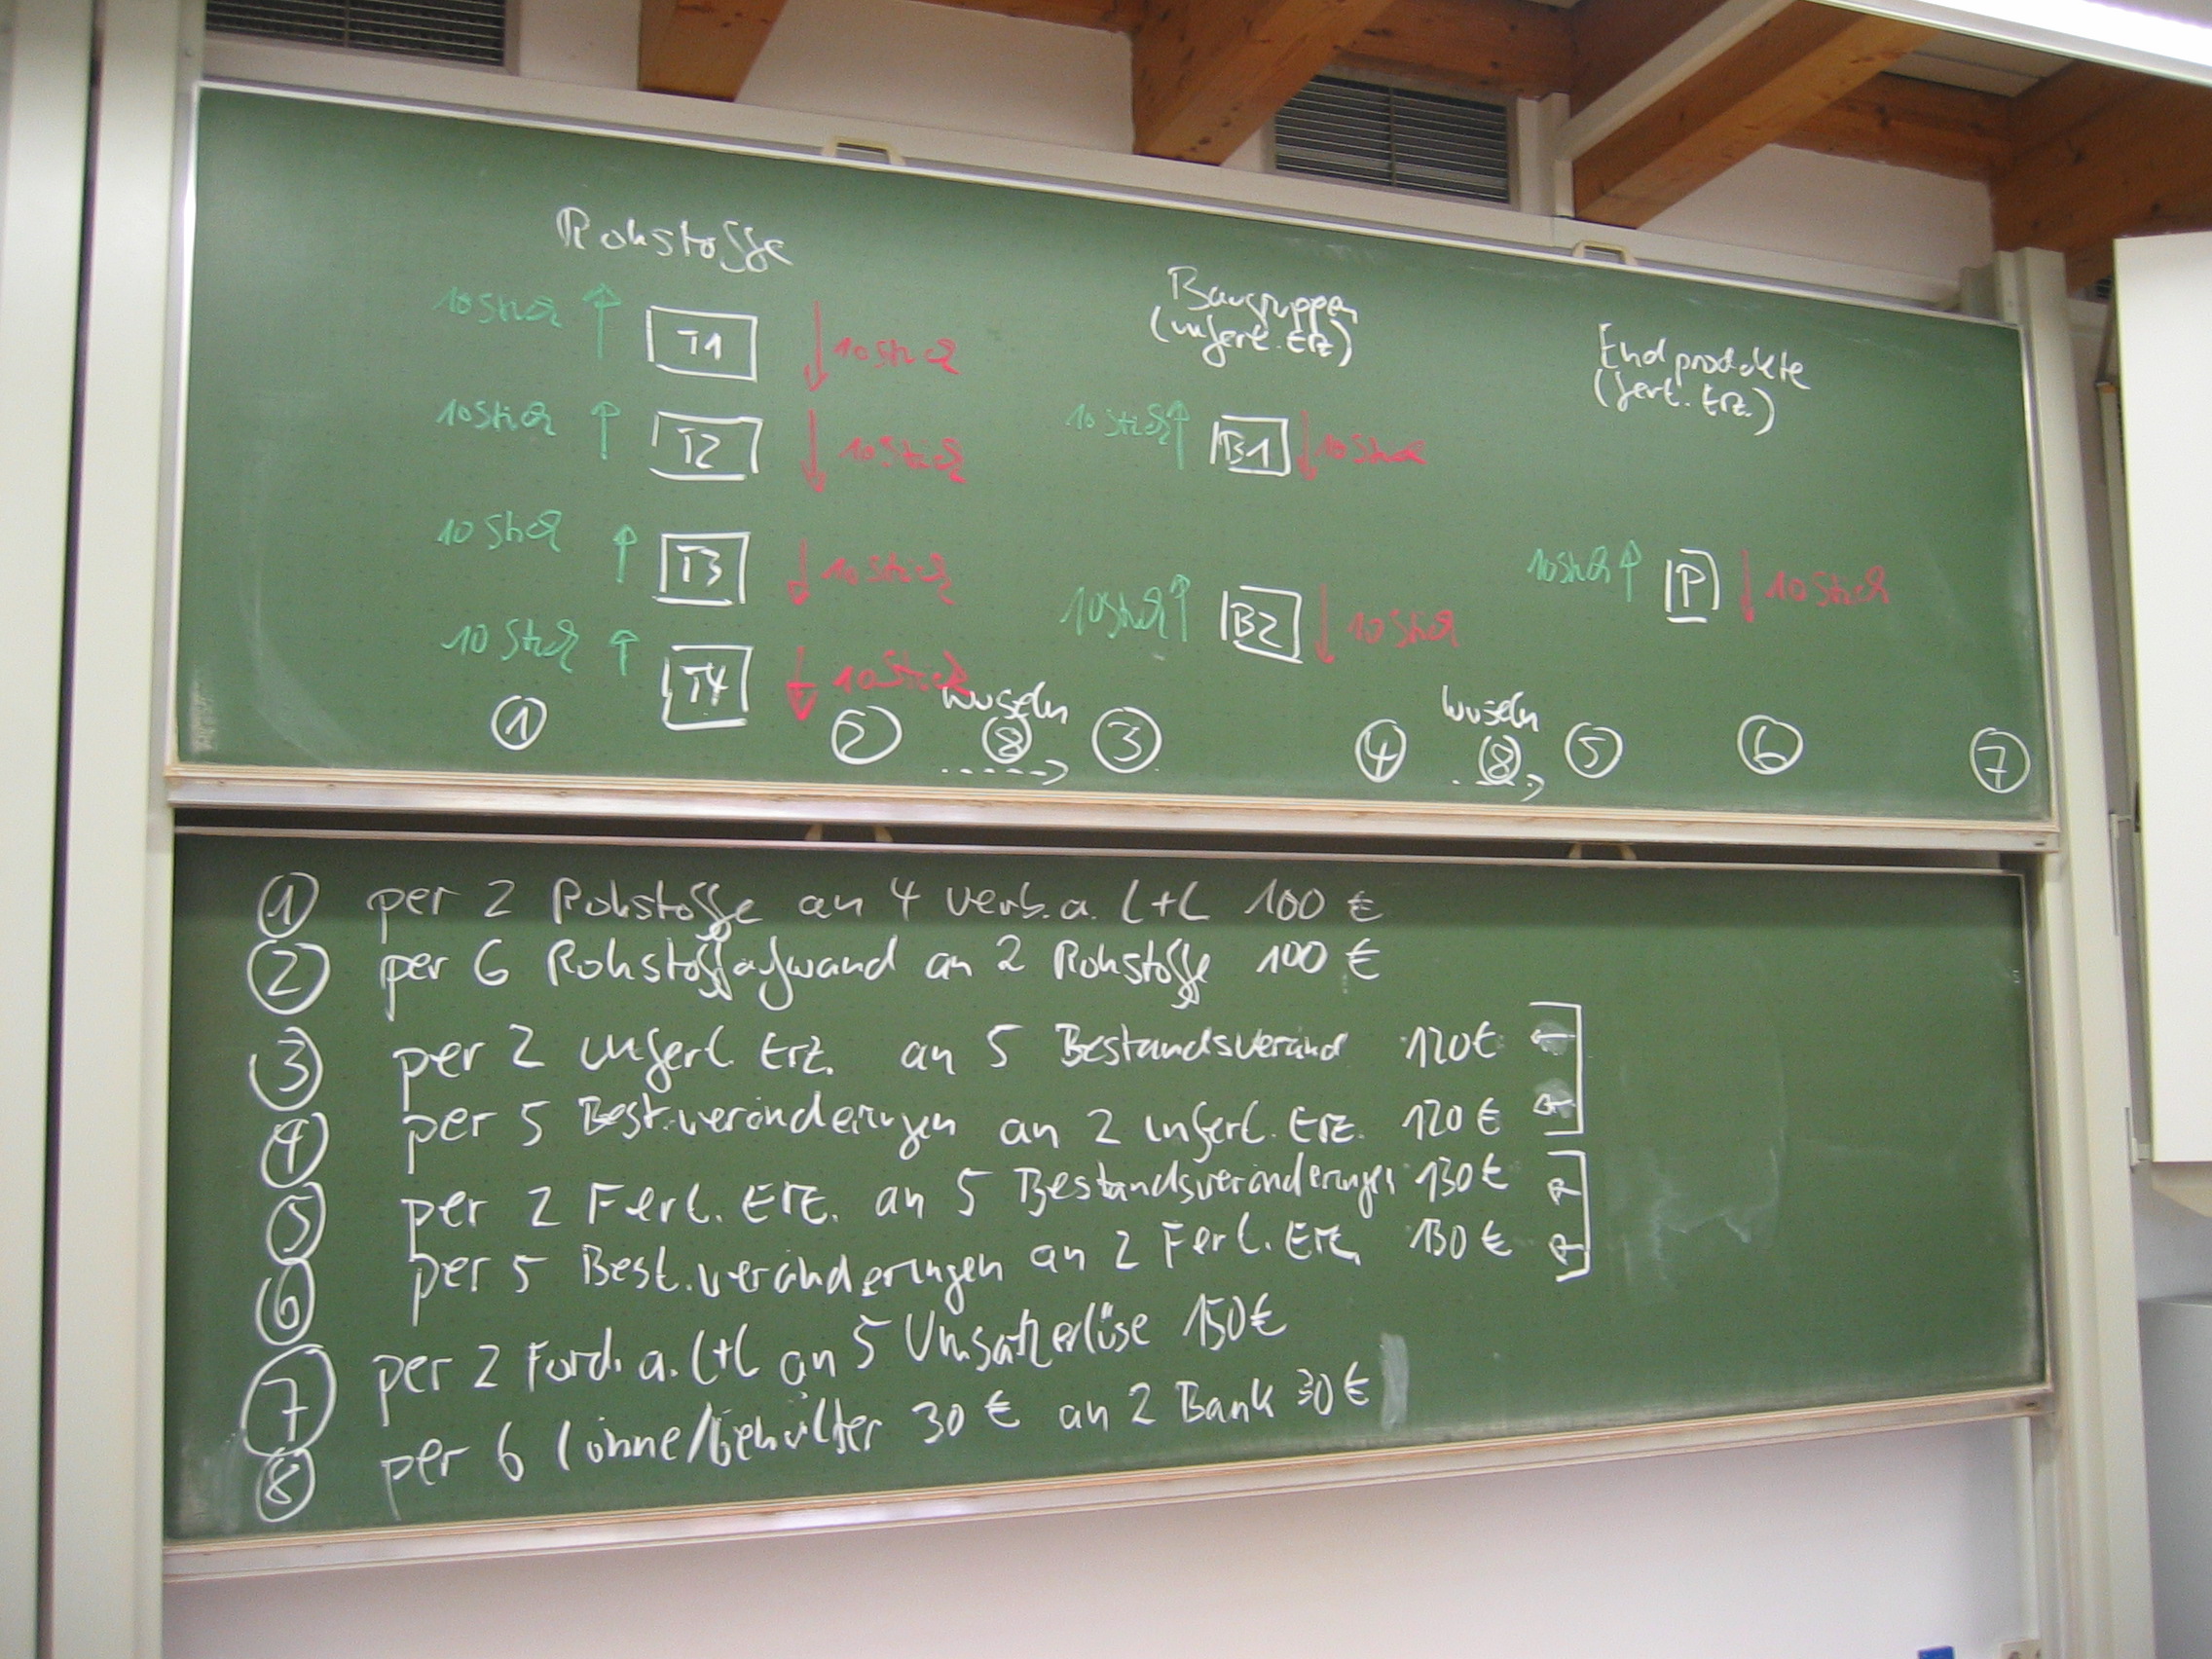 Rohstoffe
Baugruppen
(unfert. Erz)
Endprodukte
(fert. Erz.)
10 Stück T1 10 Stück
10 Stück T2 10 Stück
10 Stück B1 10 Stück
10 Stück T3 10 Stück
10 Stück P 10 Stück
10 Stück B2 10 Stück
10 Stück T4 10 Stück
wuseln wuseln
1 2 8 3 4 8 5 6 7
1 per 2 Rohstoffe an 4 Verb. a. L+L 100 €
2 per 6 Rohstoffaufwand an 2 Rohstoffe 100 €
3 per 2 unfert. Erz. an 5 Bestandsveränd 120 €
4 per 5 Best.veränderungen an 2 unfert. Erz. 120 €
5 per 2 Fert. Erz. an 5 Bestandsveränderungen 130 €
6 per 5 Best.veränderungen an 2 Fert. Erz. 130 €
7 per 2 Ford. a. L+L an 5 Umsatzerlöse 150 €
8 per 6 Löhne/Gehälter 30 € an 2 Bank 30 €